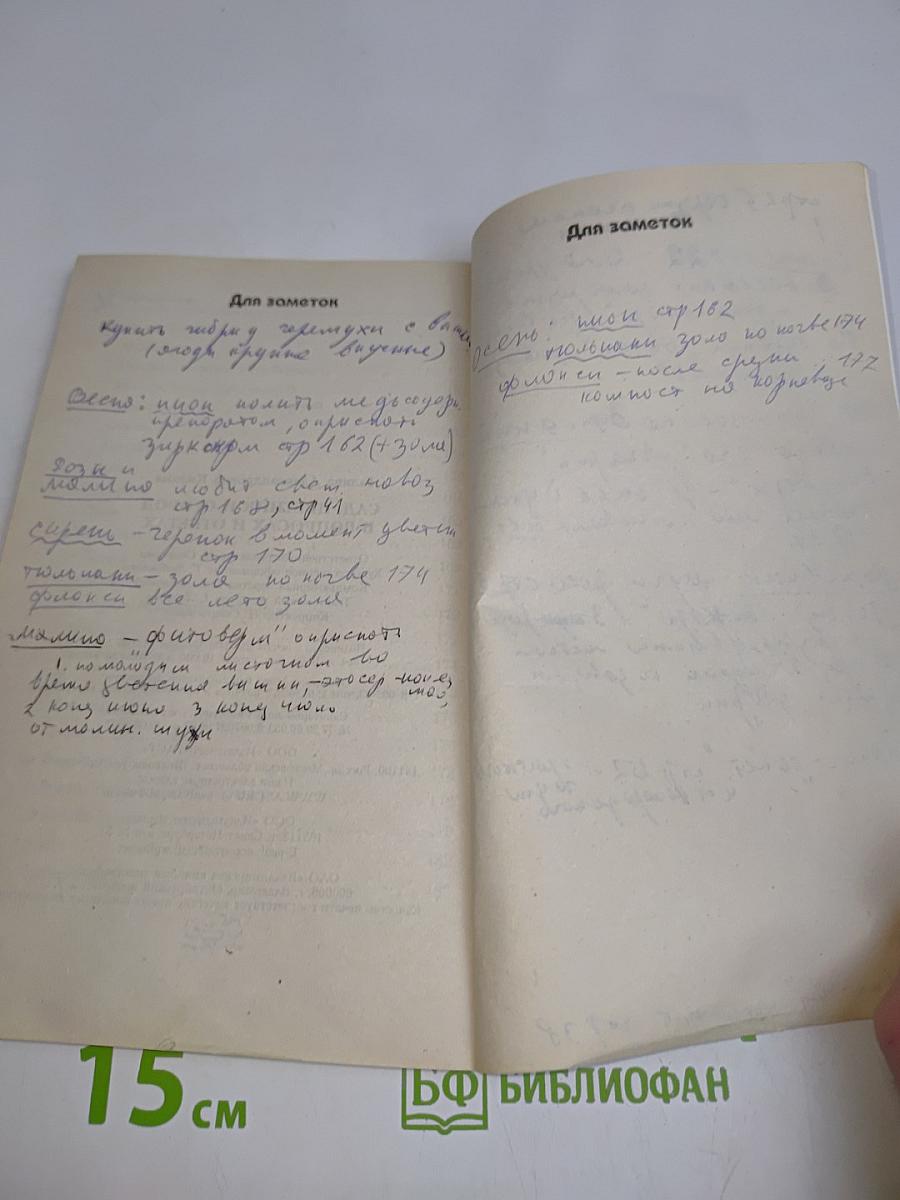 Для заметок
купить гибрид черемухи с вишн
(ягоды крупные вкусные)
Весна: пион полить медьсодерж
препаратом, опрыскать
цирконом стр 162 (+ зола)
Розы и
малина любит свет, навоз
стр 168, стр 41
сирень – черенок в момент цветен
стр 170
тюльпаны – зола по почве 174
флоксы все лето зола
малина – "фитоверм" опрыскать
1. по молодым листочкам во
время цветения вишни, – конец
мая,
2 конец июня 3 конец июля
от малин. мухи
Для заметок
осень: пион стр 162
тюльпаны зола по почве 174
флоксы – после срезки 177
компост на корневище
15 см
БФ БИБЛИОФАН